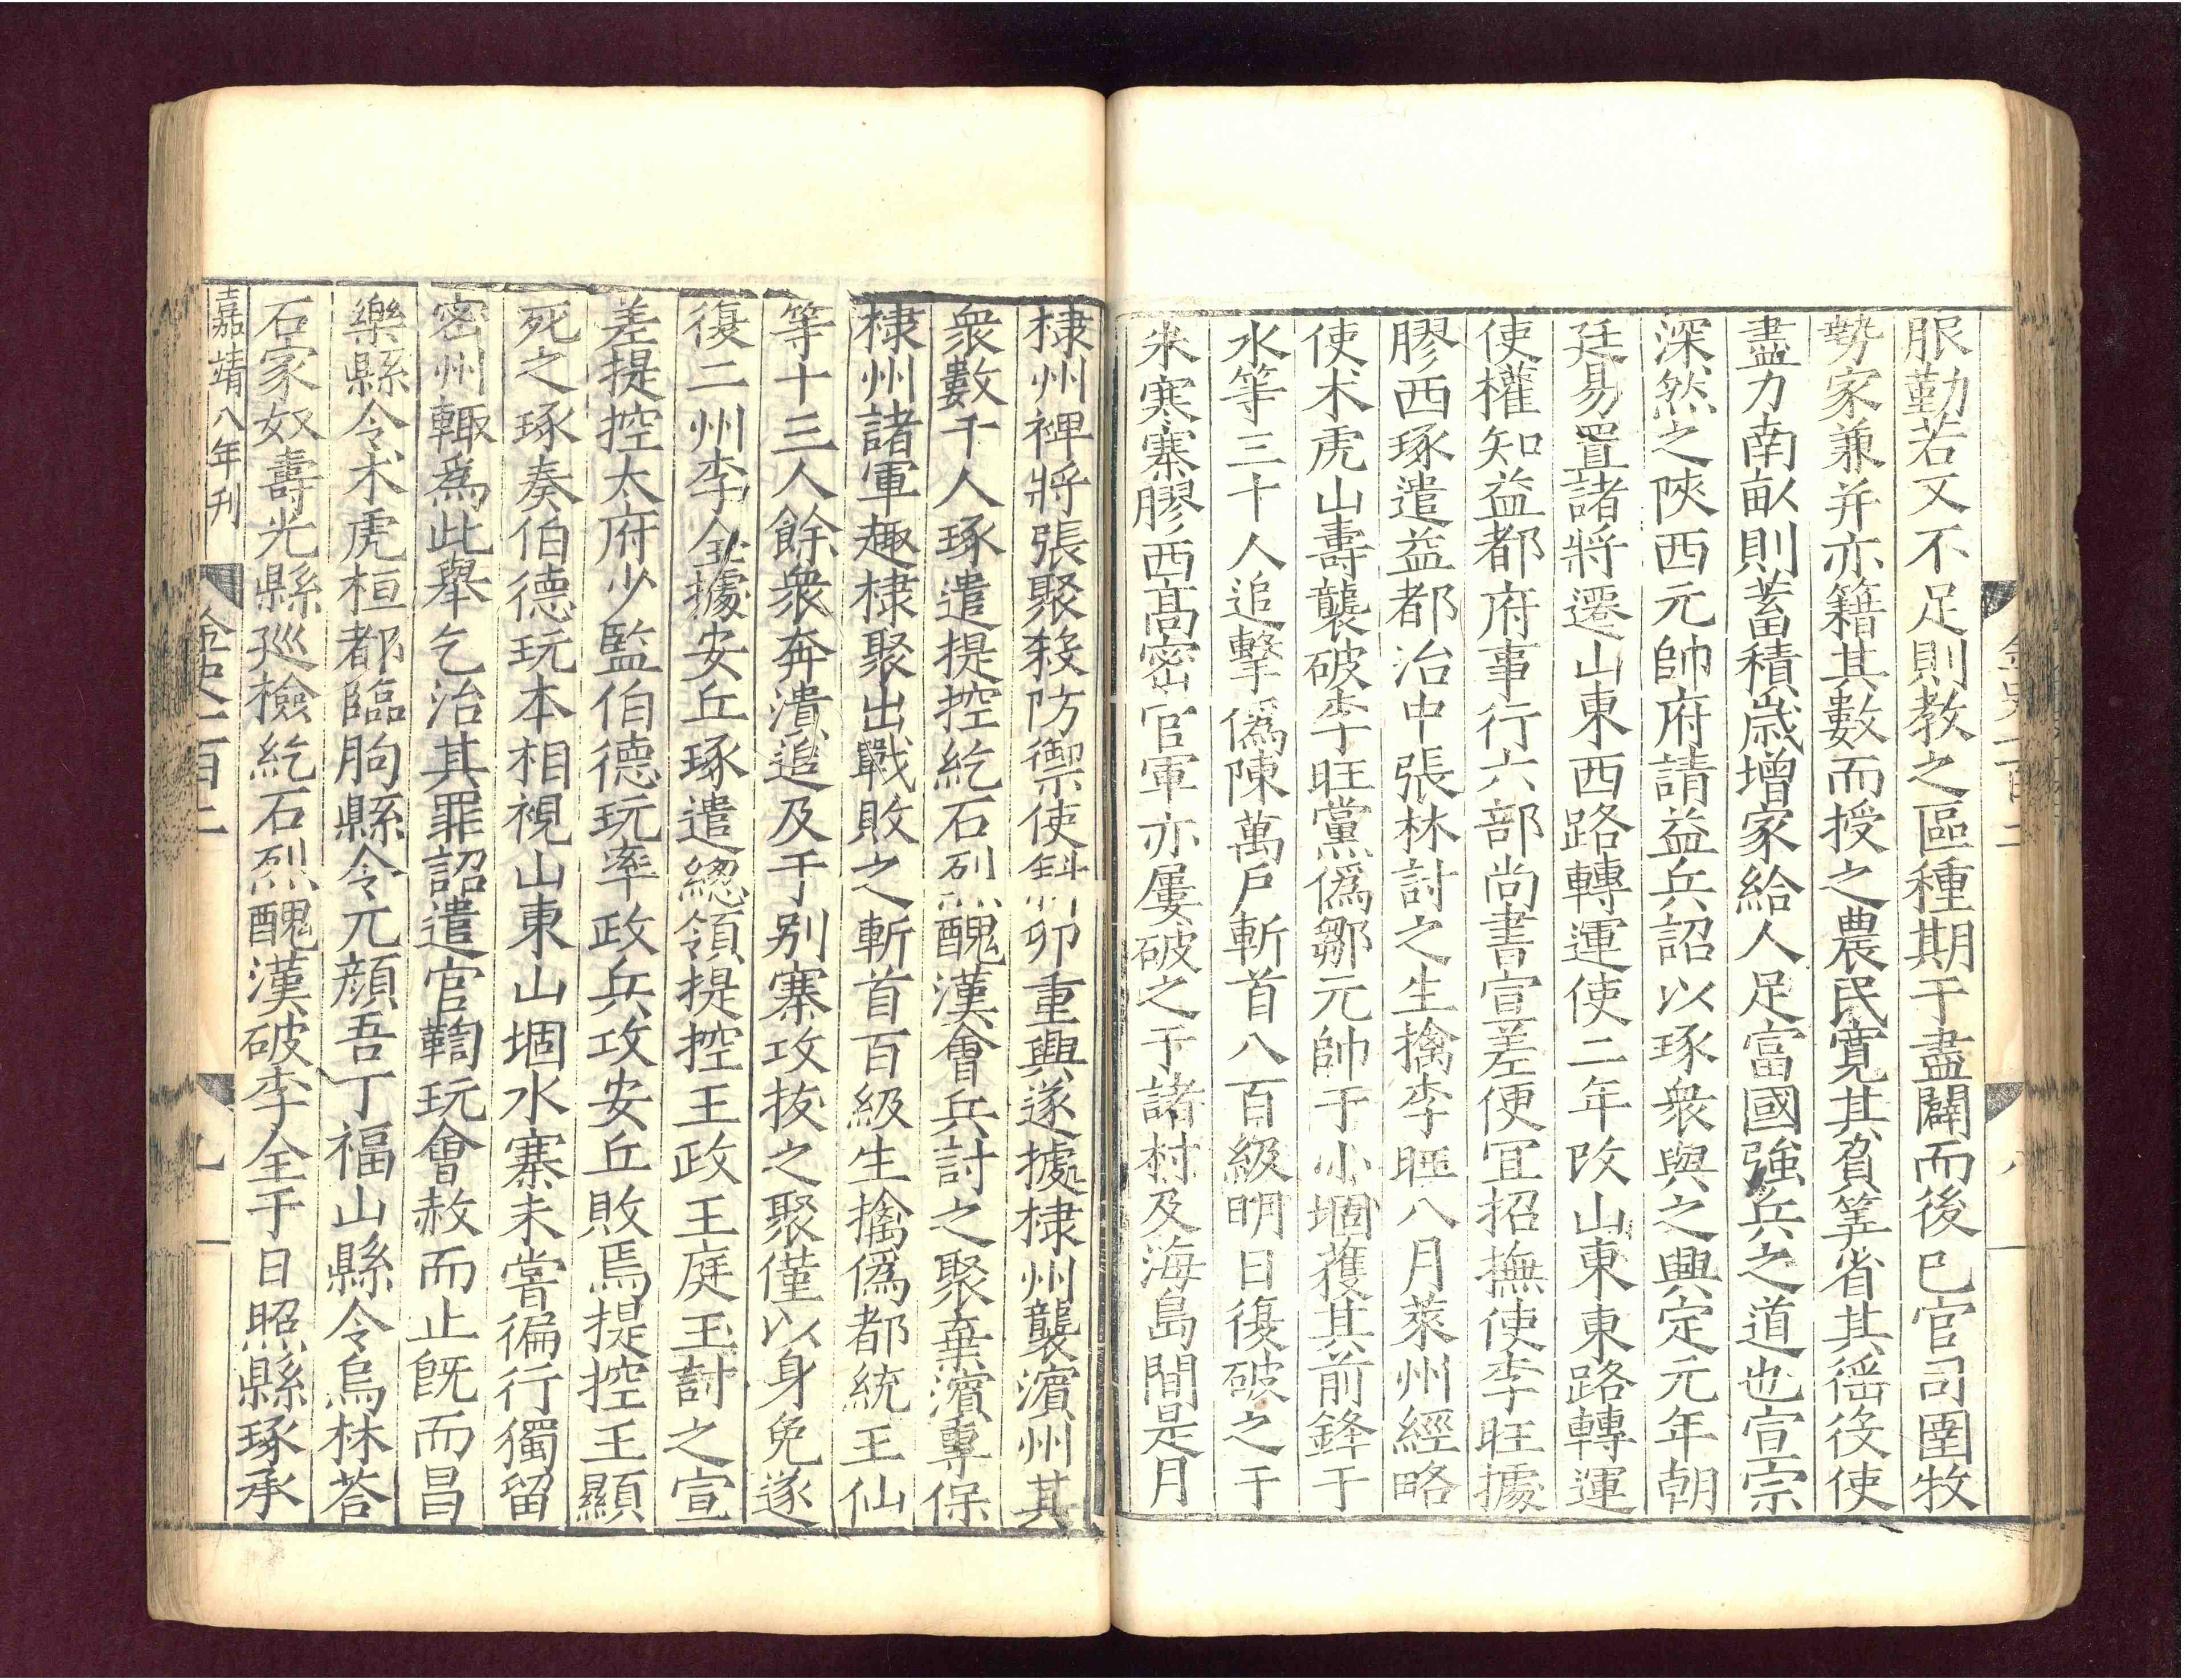 服勤若又不足則教之區種期于盡闢而後已官司圉牧
勢家兼并亦籍其數而授之農民寬其負筭省其徭役使
盡力南畝則蓄積歳增家給人足富國強兵之道也宣宗
深然之陜西元帥府請益兵詔以琢衆與之興定元年朝
廷易置諸將遷山東西路轉運使二年改山東東路轉運
使權知益都府事行六部尚書宣差便冝招撫使李旺據
膠西琢遣益都治中張林討之生擒李旺八月萊州經略
使术虎山壽襲破李旺黨僞鄒元帥于小堌獲其前鋒于
水等三十人追擊僞陳萬戶斬首八百級明日復破之于
朱寒寨膠西髙密官軍亦屢破之于諸村及海島間是月
棣州裨將張聚殺防禦使斜卯重興遂據棣州襲濵州其
衆數千人琢遣提控紇石烈醜漢會兵討之聚棄濵專保
棣州諸軍趣棣聚出戰敗之斬首百級生擒僞都統王仙
等十三人餘衆奔潰追及于别寨攻拔之聚僅以身免遂
復二州李全據安丘琢遣總領提控王政王庭玉討之宣
差提控太府少監伯德玩率政兵攻安丘敗焉提控王顯
死之琢奏伯德玩本相視山東山堌水寨未嘗徧行獨留
密州輙爲此舉乞治其罪詔遣官鞫玩會赦而止旣而昌
樂縣令术虎桓都臨朐縣令兀顔吾丁福山縣令烏林荅
石家奴壽光縣廵檢紇石烈醜漢破李全于日照縣琢承
嘉靖八年刊
金史一百二
九
金史一百二
八